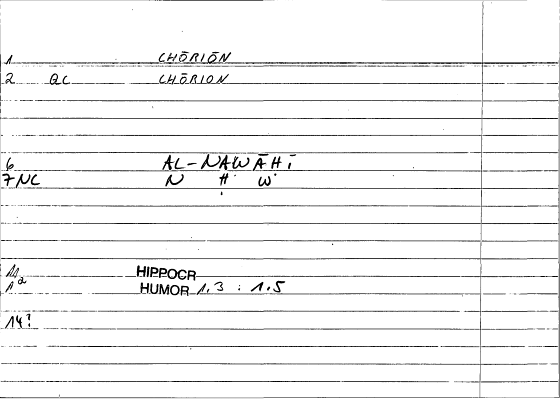 1 CHŌRIŌN
2 QC CHŌRION
6 AL-NAWĀḤĪ
7 NC N Ḥ W
11 HIPPOCR
1a HUMOR 1.3 : 1.5
14?